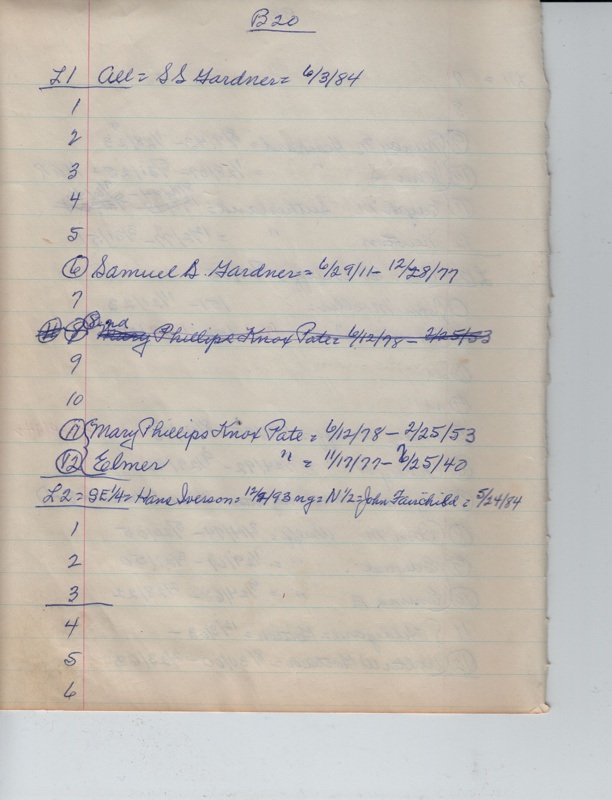 B20
L1 All = S S Gardner = 6/3/84
1
2
3
4
5
6 Samuel S. Gardner = 6/29/11 - 12/28/77
7
8 Mary Phillips Knox Pate = 6/12/78 - 2/25/53
9
10
11 Mary Phillips Knox Pate = 6/12/78 - 2/25/53
12 Elmer " = 11/17/77 - 6/25/40
L2 = SE 1/4 = Hans Iverson = 12/8/93 ng = N 1/2 = John Fairchild = 5/24/84
1
2
3
4
5
6